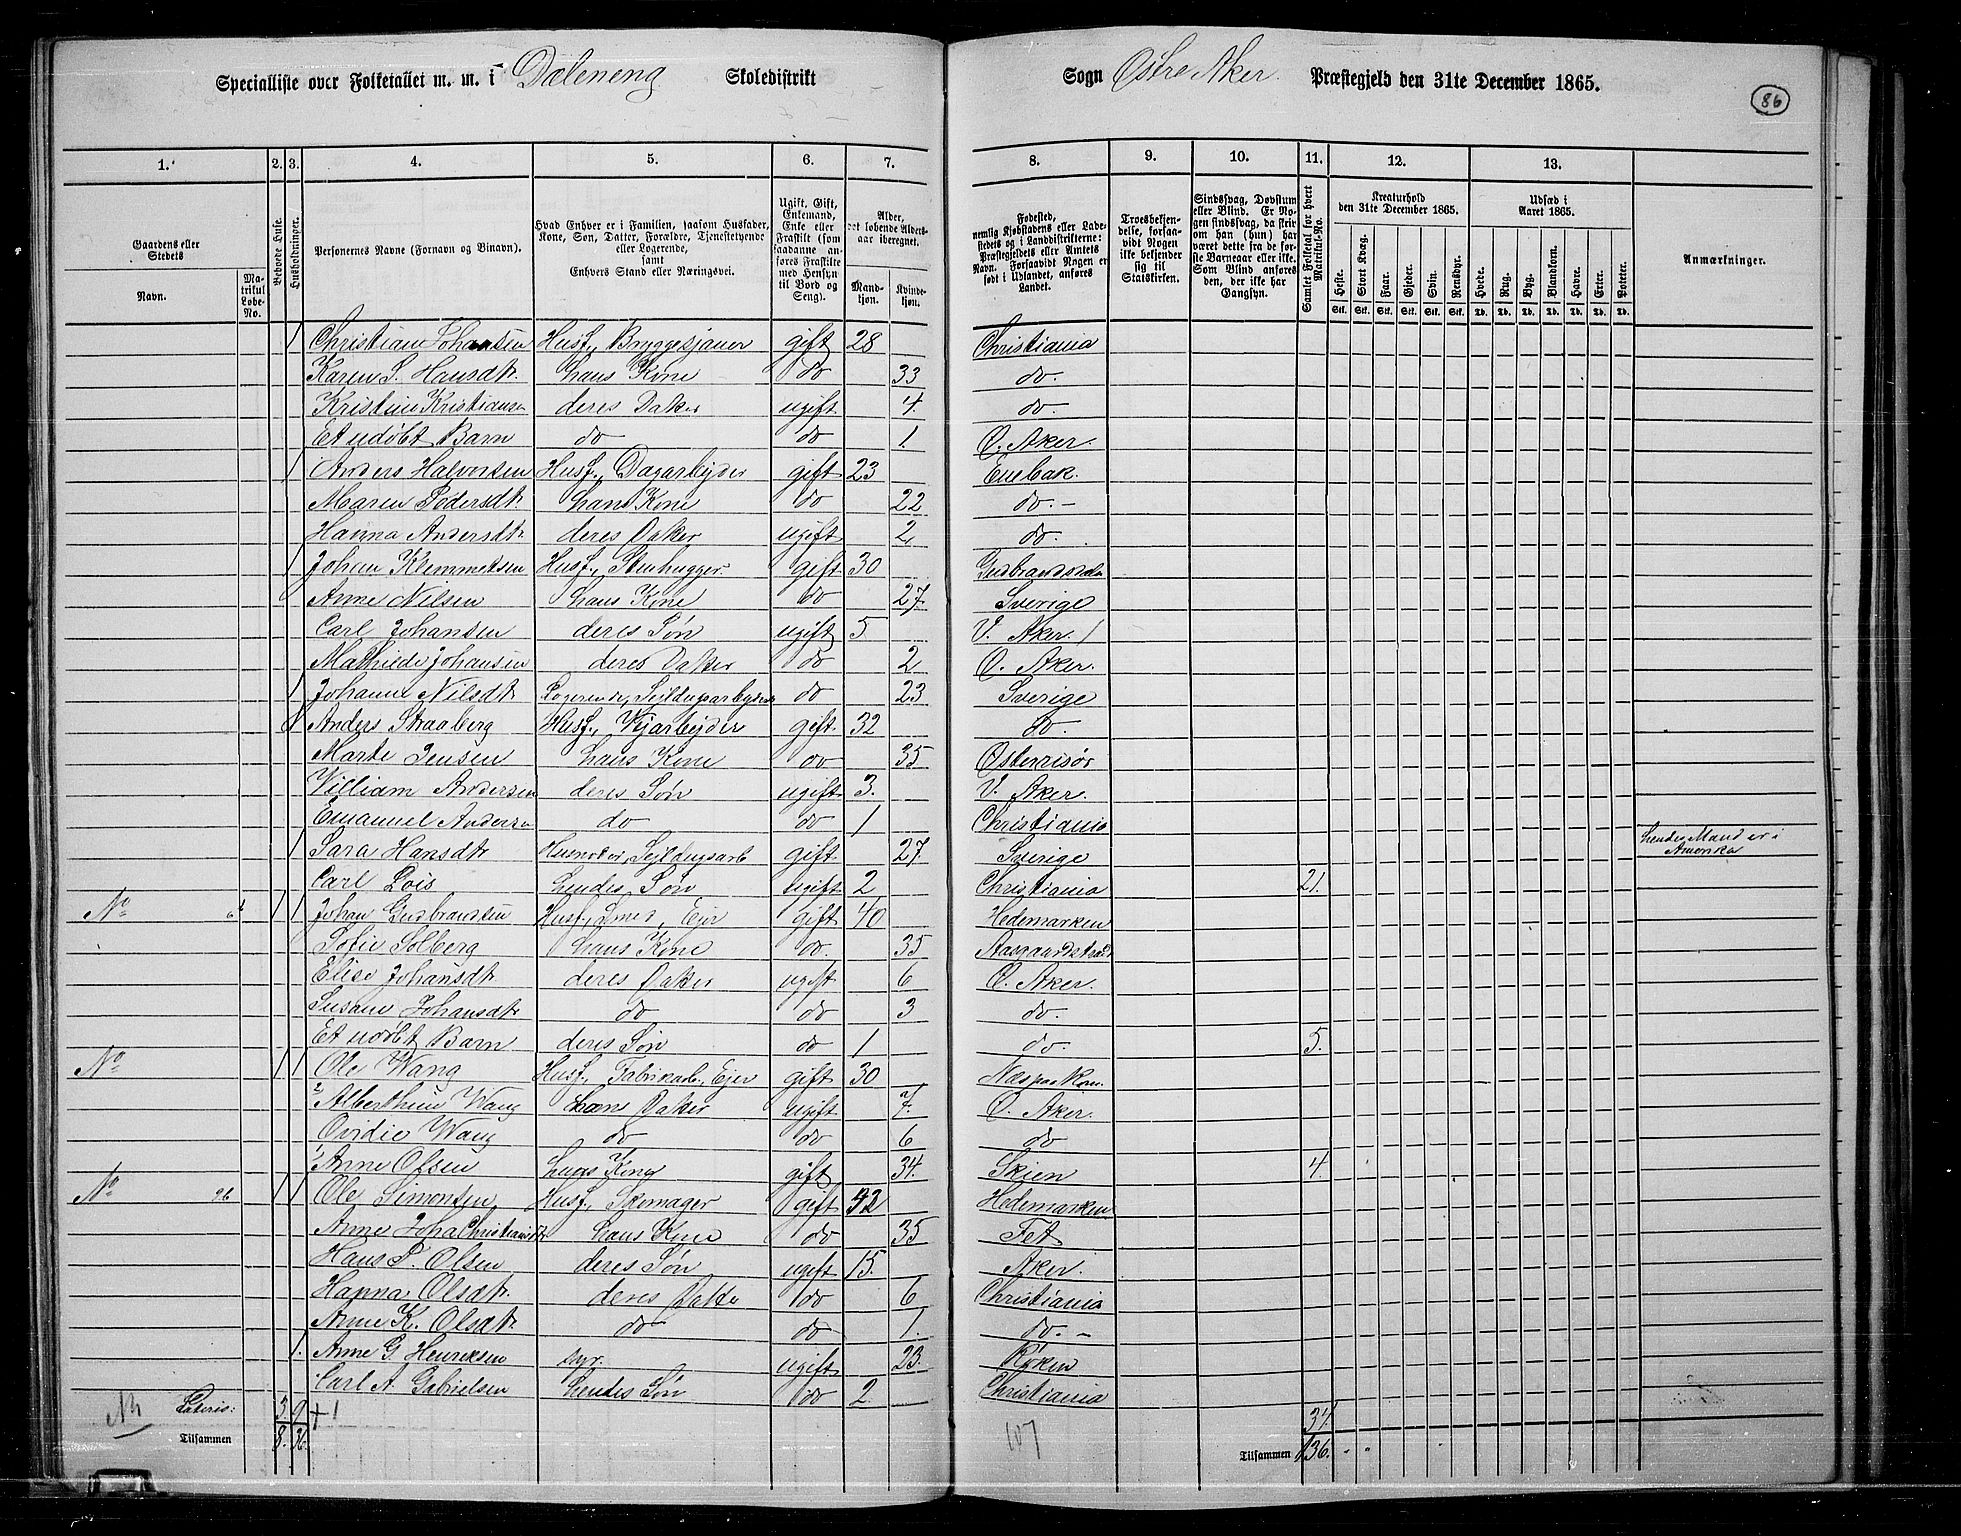 Specialliste over Folketallet m. m. i Daleneng Skoledistrikt Sogn Østre Aker Præstegjeld den 31te December 1865.
86
1. 2. 3. 4. 5. 6. 7. 8. 9. 10. 11. 12. 13.
Gaardens eller Stedets
Navn.
Matrikul Løbe-No.
Beboede Huse.
Husholdninger.
Personernes Navne (Fornavn og Binavn).
Hvad Enhver er i Familien, saasom Husfader, Kone, Søn, Datter, Forældre, Tjenestetyende eller Logerende, samt Enhvers Stand eller Næringsvei.
Ugift, Gift, Enkemand, Enke eller Fraskilt (som saadanne anføres Fraskilte med Hensyn til Bord og Seng).
Alder, det løbende Aldersaar iberegnet.
Mandkjøn.
Kvindekjøn.
Fødested, nemlig Kjøbstadens eller Ladestedets og i Landdistrikterne: Præstegjeldets eller Amtets Navn. Forsaavidt Nogen er født i Udlandet, anføres Landet.
Troesbekjendelse, forsaavidt Nogen ikke bekjender sig til Statskirken.
Sindssvag, Døvstum eller Blind. Er Nogen sindssvag, da skrives om han (hun) har været dette fra de første Barneaar eller ikke. Som Blind anføres den, der ikke har Gangsyn.
Samlet Folketal for hvert Matrikul-No.
Kreaturhold den 31te December 1865.
Heste. Stort Kvæg. Faar. Gjeder. Svin. Rensdyr.
Stk. Stk. Stk. Stk. Stk. Stk.
Udsæd i Aaret 1865.
Hvede. Rug. Byg. Blandkorn. Havre. Erter. Poteter.
Td. Td. Td. Td. Td. Td. Td.
Anmærkninger.
1 Christian Johansen Husf., Bryggesjauer gift 28 Christiania
Karen S. Hansdt. hans Kone do 33 do.
Kristine Kristianse deres Datter ugift 4. do.
Et udøbt Barn do do 1. Ø. Aker.
1 Anders Halvorsen Husf., Dagarbeider gift 23 Enebak.
Maren Pedersdt. hans Kone do 22 do.
Hanna Andersdt. deres Datter ugift 2 do.
1 Johan Klemmetsen Husf., Stenhugger gift 30 Gudbrandsdale
Anne Nilsen hans Kone do 27. Sverige
Carl Johansen deres Søn ugift 5 V. Aker.
Mathilde Johansen deres Datter do 2 Ø. Aker.
1 Johanne Nilsdt Logerende, Sejldugsarbejder do 23 Sverige
Anders Straaberg Husf., gift. 32 do.
Marte Jensen hans Kone do 35 Østerrisør
William Andersen deres Søn ugift 3. V. Aker.
Emanuel Anderse do do 1 Christiania
1 Sara Hansdt Sejldugsarb gift. 27. Sverige hendes Mand er i Amerika
Carl Lois hendes Søn ugift 2 Christiania 21.
No 1 1 Johan Gudbrandsen Husf., Smed, Ejer gift 40 Hedemarken
Sofie Solberg hans Kone do. 35 Aasgaardstrand
Elise Johansdt deres Datter ugift 6 Ø. Aker.
Susanne Johansdt do do 3 do.
Et udøbt Barn deres Søn do 1 do. 5.
No 1 1 Ole Wang Husf., Fabrikarb., Ejer gift 30
2 Alberthine Wang hans Datter ugift 7. Ø. Aker.
Ovidie Wang do do 6 do
1 Anne Olsen hans Kone gift 34. Skien 4.
No 1 1 Ole Simonsen Husf., Skomager gift 42 Hedemarken
Anne Joha Christiansdt hans Kone do 35 Fet
Hans P. Olsen deres Søn ugift 15. Aker.
Hanna Olsdt. deres Datte do 6 Christiania
Anne K. Olsdt do do 1. do.
1. Anne G. Henriksen syr. ugift 23. Røken
Carl A. Gabrielsen hendes Søn do 2. Christiania
Lateris: 3. 9 + 1 34.
Tilsammen 8. 36. 107 Tilsammen 136.